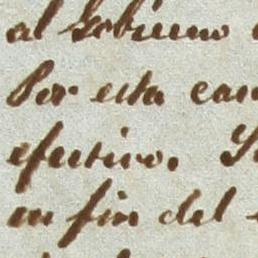 al Gobierno
Por esta
efectivo.
un fin del